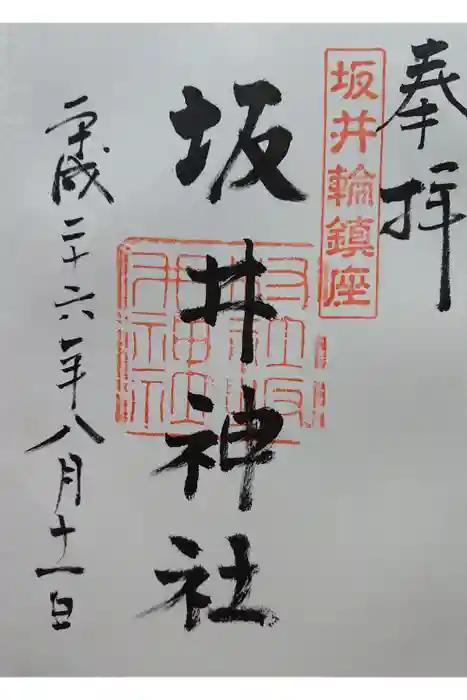 奉拝
坂井輪鎮座
坂井神社
平成二十六年八月十一日